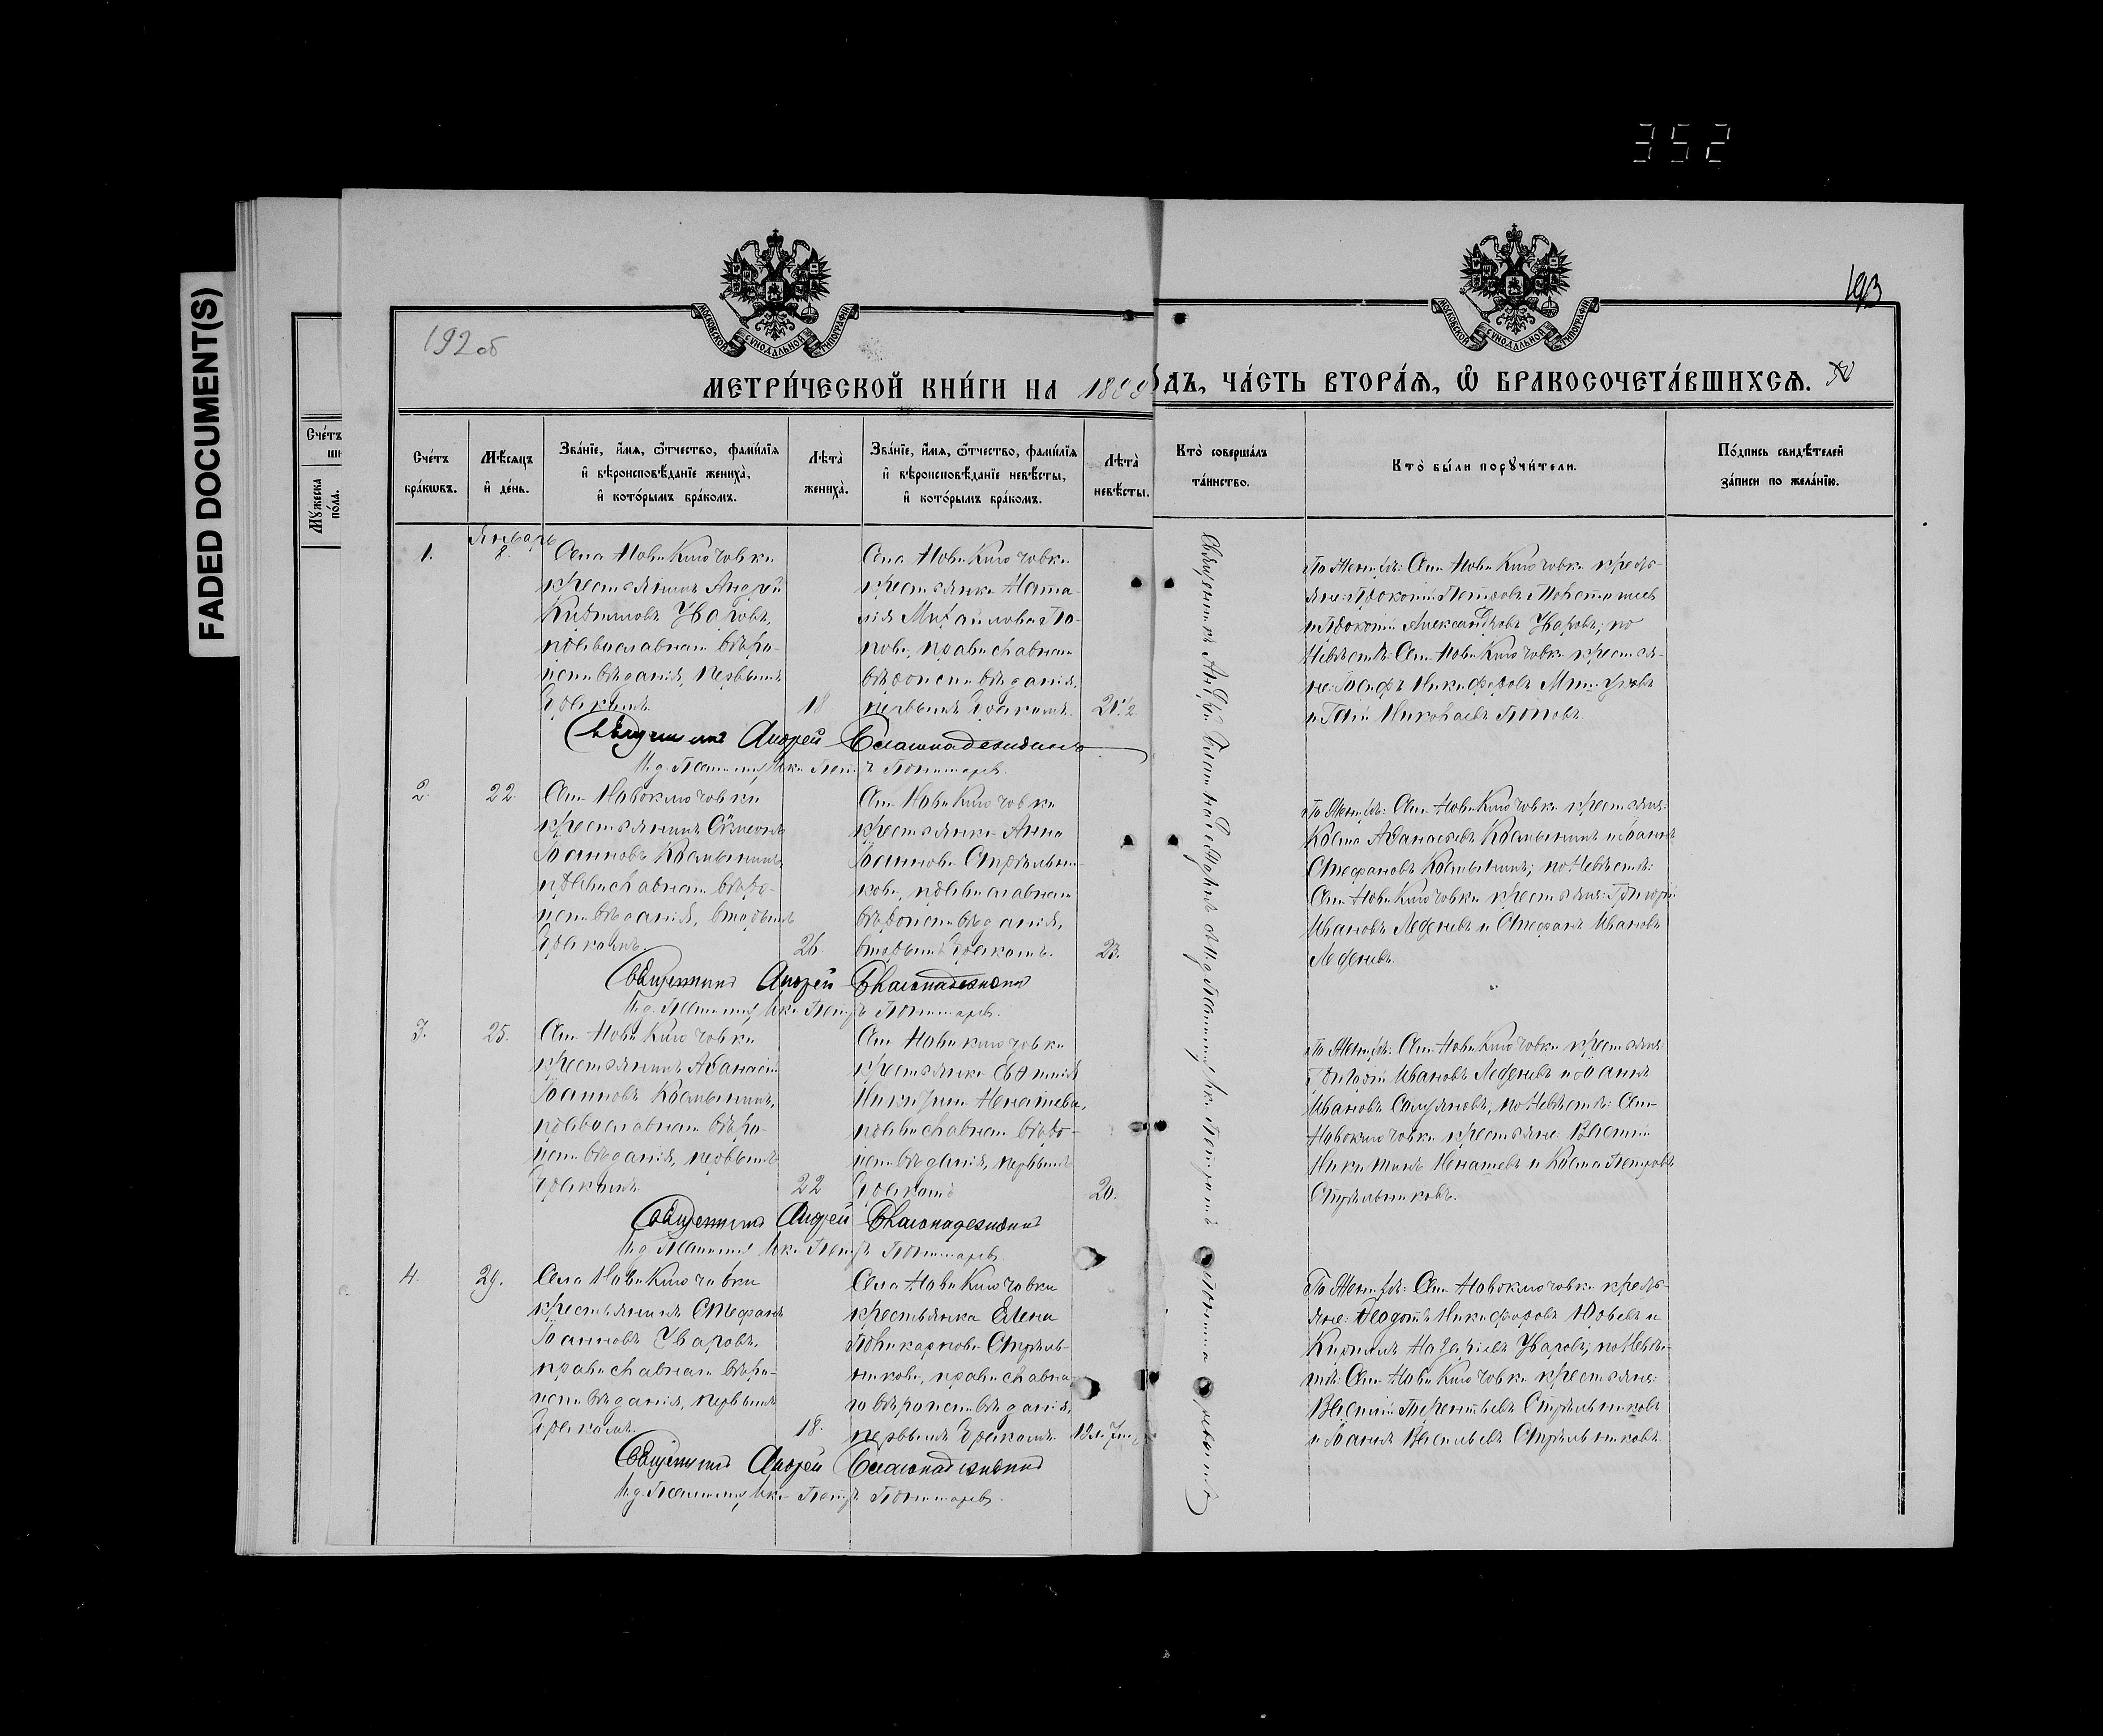 352
FADED DOCUMENT(S)
193
192 об
МОСКОВСКОЙ СѴНОДАЛЬНОЙ ТИПОГРАФІИ
МОСКОВСКОЙ СѴНОДАЛЬНОЙ ТИПОГРАФІИ
МЕТРИ́ЧЕСКОЙ КНИ́ГИ НА
ДЪ, ЧА́СТЬ ВТОРА́Я, Ѽ БРАКОСОЧЕТА́ВШИХСЯ.
Сче́тъ
Мꙋжеска
по́ла.
Сче́тъ
бра́кѡвъ.
Мѣ́сяцъ
и҆ де́нь.
Зва́нїе, и҆́мя, ѻ҆́тчество, фами́лїя
и҆ вѣроисповѣ́данїе жениха̀,
и҆ кото́рымъ бра́комъ.
Лѣта̀
жениха̀.
Зва́нїе, и҆́мя, ѻ҆́тчество, фами́лїя
и҆ вѣроисповѣ́данїе невѣ́сты,
и҆ кото́рымъ бра́комъ.
Лѣта̀
невѣ́сты.
Кто̀ соверша́лъ
та́инство.
Кто̀ бы́ли порꙋчи́тели.
По́дпись свидѣ́телей
за́писи по жела́нїю.
1.
Январь
8.
Села Ново Ключовки
крестьянинъ Андрей
Уваровъ,
православнаго вѣро-
исповѣданія, первымъ
бракомъ.
18
Села Ново Ключовки
крестьянка Ната-
лія Михайловна По-
пова, православнаго
вѣроисповѣданія,
первымъ бракомъ.
21 1/2
По женихѣ: Села Ново Ключовки кресть-
яне: Прокопій Петровъ
и Прокопій Александровъ Уваровъ; по
невѣстѣ: Села Ново Ключовки крестья-
не: Іосифъ Никифоровъ
и Николаевъ Поповъ.
Священникъ Андрей Благонадеждинъ
И. д. Псаломщика Петръ
2.
22.
Села Новоключовки
крестьянинъ Симеонъ
Іоанновъ Косьминъ,
православнаго вѣро-
исповѣданія, вторымъ
бракомъ.
26.
Села Ново Ключовки
крестьянка Анна
Іоаннова Стрѣльни-
кова, православнаго
вѣроисповѣданія,
вторымъ бракомъ.
23.
По женихѣ: Села Ново Ключовки крестьяне:
Косма Аѳанасьевъ Косьминъ и Іоаннъ
Стефановъ Косьминъ; по невѣстѣ:
Села Ново Ключовки крестьяне: Григорій
Ивановъ Леденевъ и Стефанъ Ивановъ
Леденевъ.
Священникъ Андрей Благонадеждинъ
И. д. Псаломщика Петръ
3.
25.
Села Ново Ключовки
крестьянинъ Аѳанасій
Іоанновъ Косьминъ,
православнаго вѣро-
исповѣданія, первымъ
бракомъ.
22
Села Ново ключовки
крестьянка Евѳимія
Никитина Ненашева,
православнаго вѣро-
исповѣданія, первымъ
бракомъ
20.
По женихѣ: Села Ново Ключовки крестьяне:
Григорій Ивановъ Леденевъ и Іоаннъ
Ивановъ по невѣстѣ: Села
Новоключовки крестьяне: Василій
Никитинъ Ненашевъ и Косма Петровъ
Стрѣльниковъ.
Священникъ Андрей Благонадеждинъ
И. д. Псаломщика Петръ
4.
29.
Села Ново Ключовки
крестьянинъ Стефанъ
Іоанновъ Уваровъ,
православнаго вѣро-
исповѣданія, первымъ
бракомъ.
18.
Села Ново Ключовки
крестьянка Елена
Поликарпова Стрѣль-
никова, православна-
го вѣроисповѣданія,
первымъ бракомъ
По женихѣ: Села Новоключовки кресть-
яне: Ѳеодотъ Никифоровъ и
Кириллъ Уваровъ; по невѣс-
тѣ: Села Ново Ключовки крестьяне:
Василій Терентьевъ Стрѣльниковъ
и Іоаннъ Васильевъ Стрѣльниковъ.
Священникъ Андрей Благонадеждинъ
И. д. Псаломщика Петръ
Священникъ Андрей Благонадеждинъ